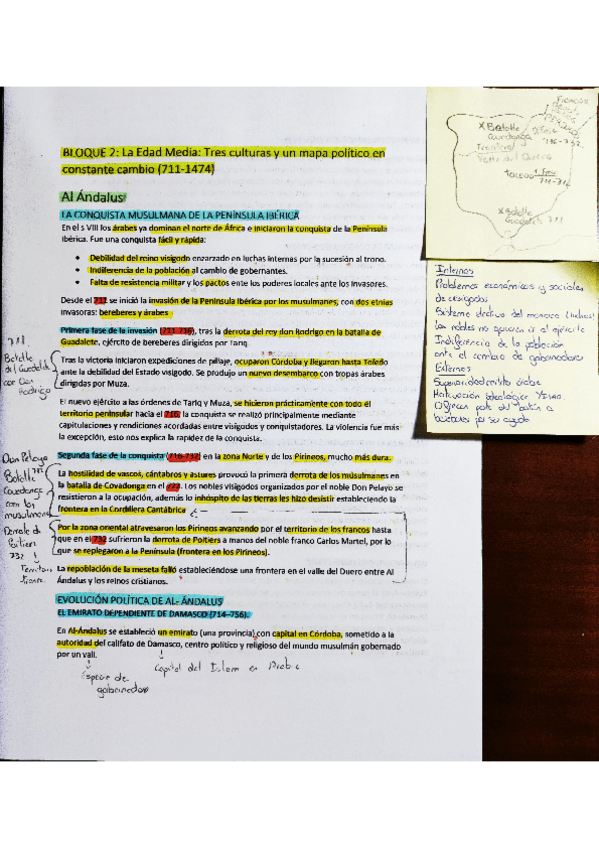 BLOQUE 2: La Edad Media: Tres culturas y un mapa político en
constante cambio (711-1474)
Al Ándalus
LA CONQUISTA MUSULMANA DE LA PENÍNSULA IBÉRICA
En el s VIII los árabes ya dominan el norte de África e iniciaron la conquista de la Península
Ibérica. Fue una conquista fácil y rápida:
• Debilidad del reino visigodo enzarzado en luchas internas por la sucesión al trono.
• Indiferencia de la población al cambio de gobernantes.
• Falta de resistencia militar y los pactos entre los puderes locales ante los invasores.
Desde el 711 se inició la invasión de la Península Ibérica por los musulmanes, con dos etnias
invasoras: bereberes y árabes
Primera fase de la invasión (711-716), tras la derrota del rey don Rodrigo en la batalla de
Guadalete, ejército de bereberes dirigidas por Tariq.
Tras la victoria iniciaron expediciones de pillaje, ocuparon Córdoba y llegaron hasta Toledo
ante la debilidad del Estado visigodo. Se produjo un nuevo desembarco con tropas árabes
dirigidas por Muza.
El nuevo ejército a las órdenes de Tariq y Muza, se hicieron prácticamente con todo el
territorio peninsular hacia el 716, la conquista se realizó principalmente mediante
capitulaciones y rendiciones acordadas entre visigodos y conquistadores. La violencia fue más
la excepción, esto nos explica la rapidez de la conquista.
Segunda fase de la conquista (716-737) en la zona Norte y de los Pirineos, mucho más dura.
La hostilidad de vascos, cántabros y astures provocó la primera derrota de los musulmanes en
la batalla de Covadonga en el 722. Los nobles visigodos organizados por el noble Don Pelayo se
resistieron a la ocupación, además lo inhóspito de las tierras les hizo desistir estableciendo la
frontera en la Cordillera Cantábrica
Por la zona oriental atravesaron los Pirineos avanzando por el territorio de los francos hasta
que en el 732 sufrieron la derrota de Poitiers a manos del noble franco Carlos Martel, por lo
que se replegaron a la Península (frontera en los Pirineos).
La repoblación de la meseta falló estableciéndose una frontera en el valle del Duero entre Al
Ándalus y los reinos cristianos.
EVOLUCIÓN POLÍTICA DE AL- ÁNDALUS
EL EMIRATO DEPENDIENTE DE DAMASCO (714–756).
En Al-Ándalus se estableció un emirato (una provincia) con capital en Córdoba, sometido a la
autoridad del califato de Damasco, centro político y religioso del mundo musulmán gobernado
por un valí.
Especie de
gobernador
Capital del Islam en
711
Batalla
del Guadalete
con Don
Rodrigo
Don Pelayo
Batalla 722
Covadonga
con los
musulmanes
Derrota de
Poitiers
732
X Batalla
Covadonga
Frontera
Valle del Duero
2ª Fase
716-732
Toledo
1ª Fase
711-716
X Batalla
Guadalete 711
Internos
Problemas económicos y sociales
de visigodos
Sistema electivo del monarca (luchas)
Los nobles no apoyan al ejército
Indiferencia de la población
ante el cambio de gobernadores
Externos
Superioridad militar árabe
Motivación ideológica
Ofrecen parte del botín a
bereberes por su ayuda